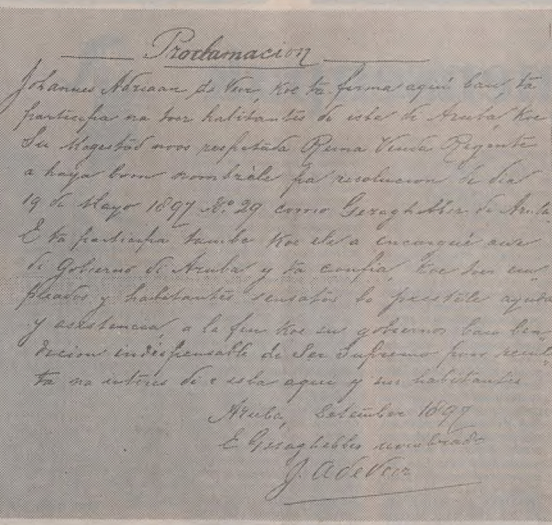 Proclamacion
Johannes Adriaan de Veer, koe ta firma aqui bau, ta
participa na toor habitantes de isla di Aruba, koe
Su Magestad noos respetada Reina Viuda Regente
a haya bon nombréle pa resolucion di dia
19 di Mayo 1897 No. 29 como Gezaghebber di Aruba
E ta participa tambe koe el a encargué awe
di Gobierno di Aruba y ta confia, koe toor em
pleados y habitantes sensatos lo prestéle ayuda
y asistencia, a la fin koe su gobierno bau ben
dicion indispensable di Ser Supremo por resul
ta na interes di e isla aqui y su habitantes
Aruba, Setember 1897
E Gezaghebber nombrado
J. A de Veer